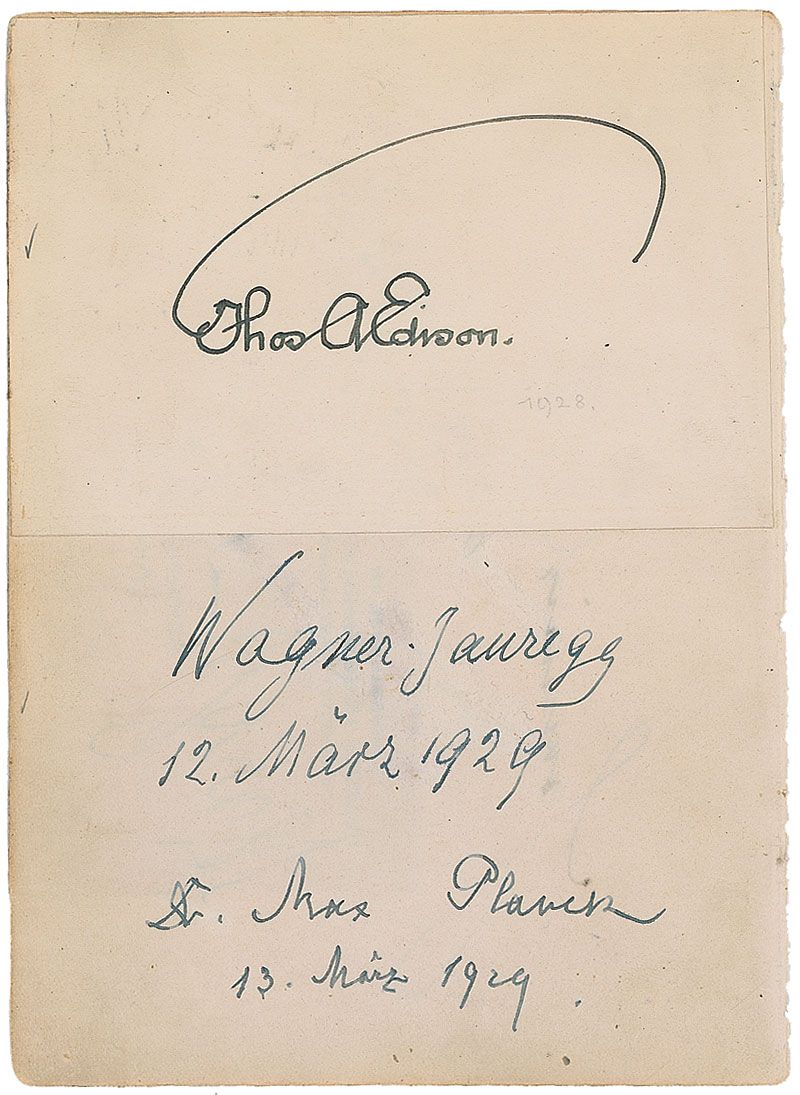 Thos A Edison.
1928.
Wagner-Jauregg
12. März 1929
Dr. Max Planck
13. März 1929.